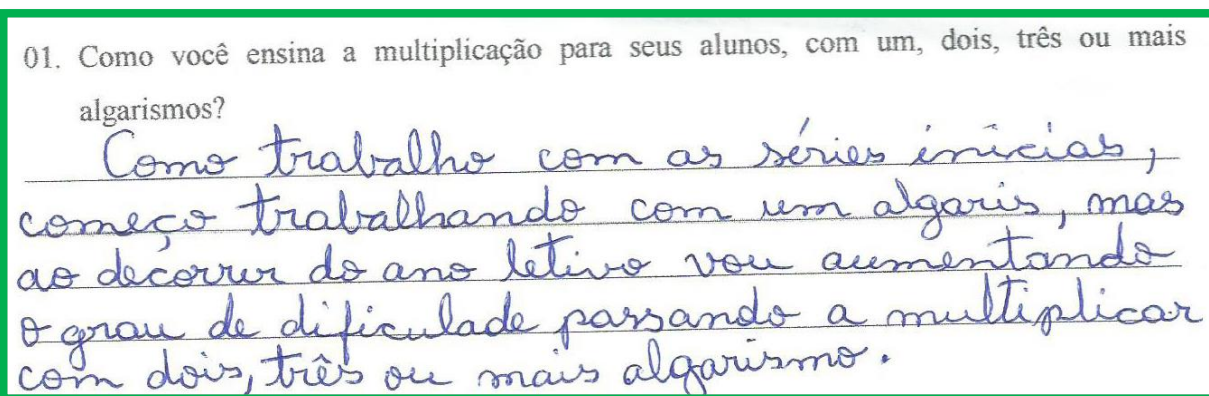 01. Como você ensina a multiplicação para seus alunos, com um, dois, três ou mais
algarismos?
Como trabalho com as séries inícias,
começo trabalhando com um algaris, mas
ao decorrer do ano letivo vou aumentando
o grau de dificulade passando a multiplicar
com dois, três ou mais algarismo.